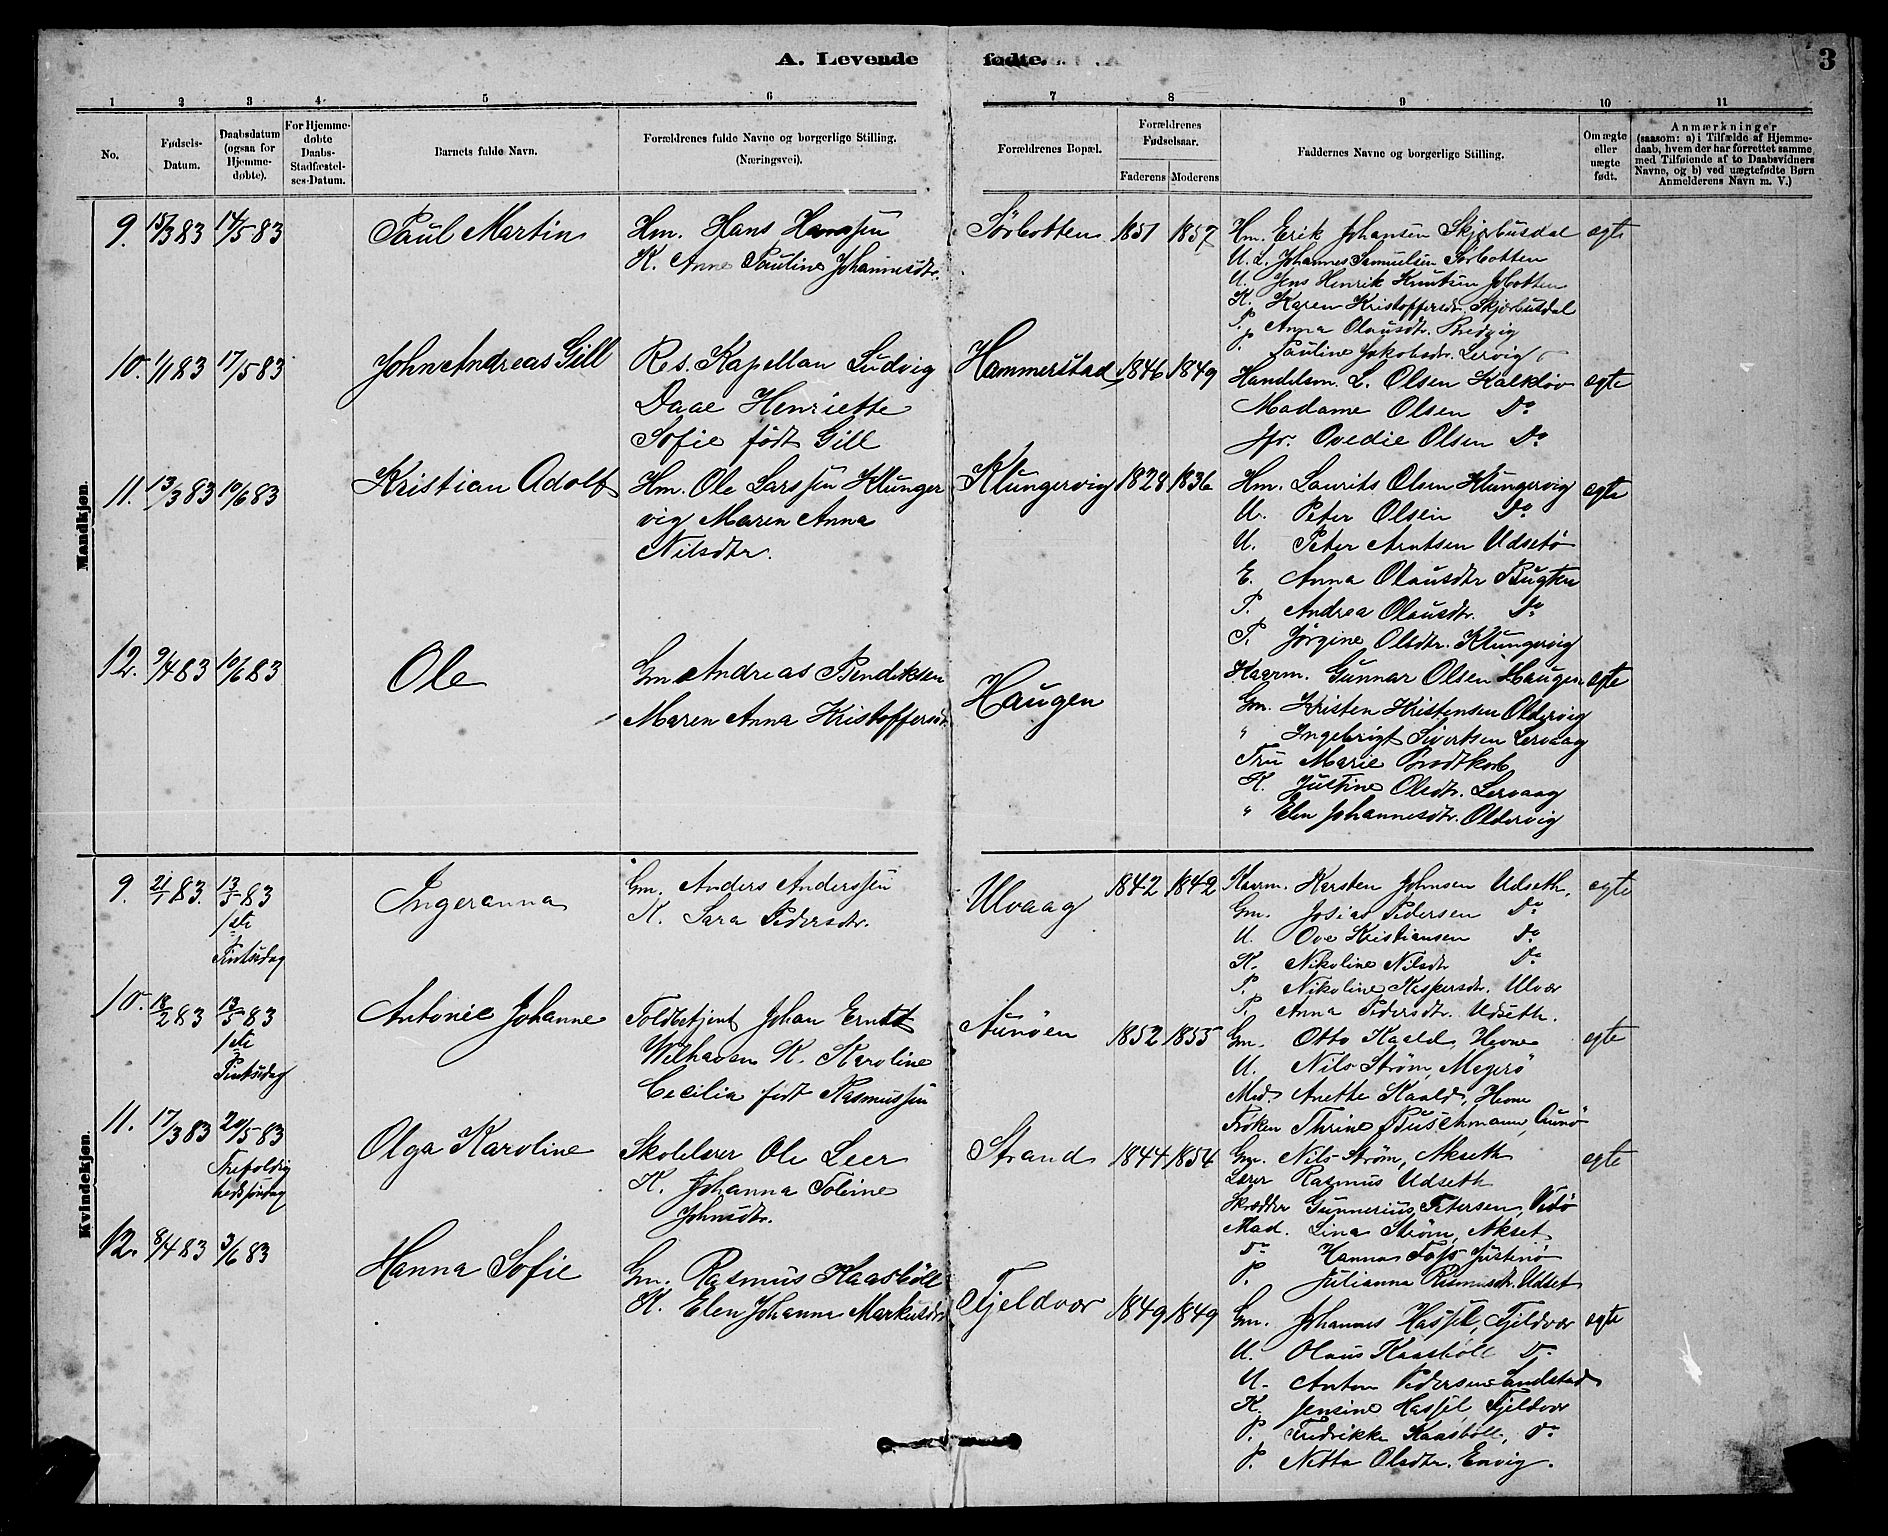 A. Levende fødte.
3
1 2 3 4 5 6 7 8 9 10 11
No.
Fødsels-Datum.
Daabsdatum (ogsaa for Hjemme-døbte).
For Hjemme-døbte Daabs-Stadfæstel-ses-Datum.
Barnets fulde Navn.
Forældrenes fulde Navne og borgerlige Stilling. (Næringsvei).
Forældrenes Bopæl.
Forældrenes Fødselsaar.
Faderens Moderens
Faddernes Navne og borgerlige Stilling.
Om ægte eller uægte født.
Anmærkninger
(saasom: a) i Tilfælde af Hjemme-
daab, hvem der har forrettet samme,
med Tilføiende af to Daabsvidners
Navne, og b) ved uægtefødte Børn
Anmelderens Navn m. V.)
Mandkjøn.
9. 15/3 83 14/5 83 Paul Martin
Hm. Hans Hanssen
K. Anne Pauline Johannesdtr.
Sørbotten 1851 1857
Hm. Erik Johansen Skjærbusdal
U. L. Johannes Samuelsen Sørbotten
U. Jens Henrik Knutsen
K. Karen Kristoffersdtr. Skjærbusdal
P. Anna Olausdtr. Bredvig
P. Pauline Jakobsdtr. Lervig
ægte
10. 1/1 83 17/5 83 John Andreas Gill
Res. Kapellan Ludvig
Daae Henriette
Sofie født Gill
Hammerstad 1846 1849
Handelsm. L. Olsen Kalkløv
Madame Olsen Do
Jfr. Ovedie Olsen Do
ægte
11. 13/3 83 10/6 83 Kristian Adolf
Hm. Ole Larssen Klunger
vig Maren Anna
Nilsdtr.
Klungervig 1828 1836
Hm. Laurits Olsen Klungervig
U. Peter Olsen Do
U. Peter Arntsen Udsetø
E. Anna Olausdtr Bugten
P. Andrea Olausdtr. Do
P. Jørgine Olsdtr. Klungervig
ægte
12. 9/4 83 10/6 83 Ole
Gm. Andreas Bendiksen
Maren Anna Kristoffersdtr.
Haugen
Kaarm. Gunnar Olsen Haugen
Gm. Kristen Kristensen Oldervig
" Ingebrigt Sivertsen Lervaag
Fru Marie Brodtkorb
K. Justine Olsdtr. Lervaag
" Elen Johannesdtr. Oldervig
ægte
Kvindekjøn.
9. 21/1 83. 13/5 83
1ste
Pintsedag
Ingeranna
Gm. Anders Anderssen
K. Sara Pedersdtr.
Ulvaag 1842 1842
Kaarm. Karsten Johnsen Udseth,
Gm. Josias Pedersen Do
U. Ove Kristiansen Do
K. Nikoline Nilsdtr Do
P. Nikoline Kaspersdtr. Ulvær
P. Anna Pedersdtr. Udseth.
ægte
10. 18/2 83 13/5 83
1ste
Pintsedag
Antonie Johanne
Toldbetjent Johan Ernst
Welhaven K. Karoline
Cecilia født Rasmussen
Aunøen 1852 1855
Gm. Otto Kaald, Hevne
U. Nils Strøm, Megerø
Mad. Anette Kaald, Hevne
Frøken Thrine Buschmann, Aunø
ægte
11. 17/3 83 20/5 83
Trefoldig
hedssøndag
Olga Karoline
Skolelærer Ole Leer
K. Johanna Toline
Johnsdtr.
Strand 1844 1854
Gm. Nils Strøm, Akseth
Lærer Rasmus Udseth
Skrædder Gunnerius Petersen, Vedø
Mad. Lina Strøm, Akset
Do Hanna Justnø
P. Julianna Rasmusdtr. Udset
ægte
12. 8/4 83 3/6 83 Hanna Sofie
Gm. Rasmus Kaasbøll
K. Elen Johanna Markusdtr
Fjeldvær 1849 1849
Gm. Johannes Hassel, Fjeldvær
U. Olaus Kaasbøll Do
U. Anton Pedersen Sandstad
K. Jensine Hassel, Fjeldvær
P. Fredrikke Kaasbøll, Do
P. Netta Olsdtr. Envig.
ægte